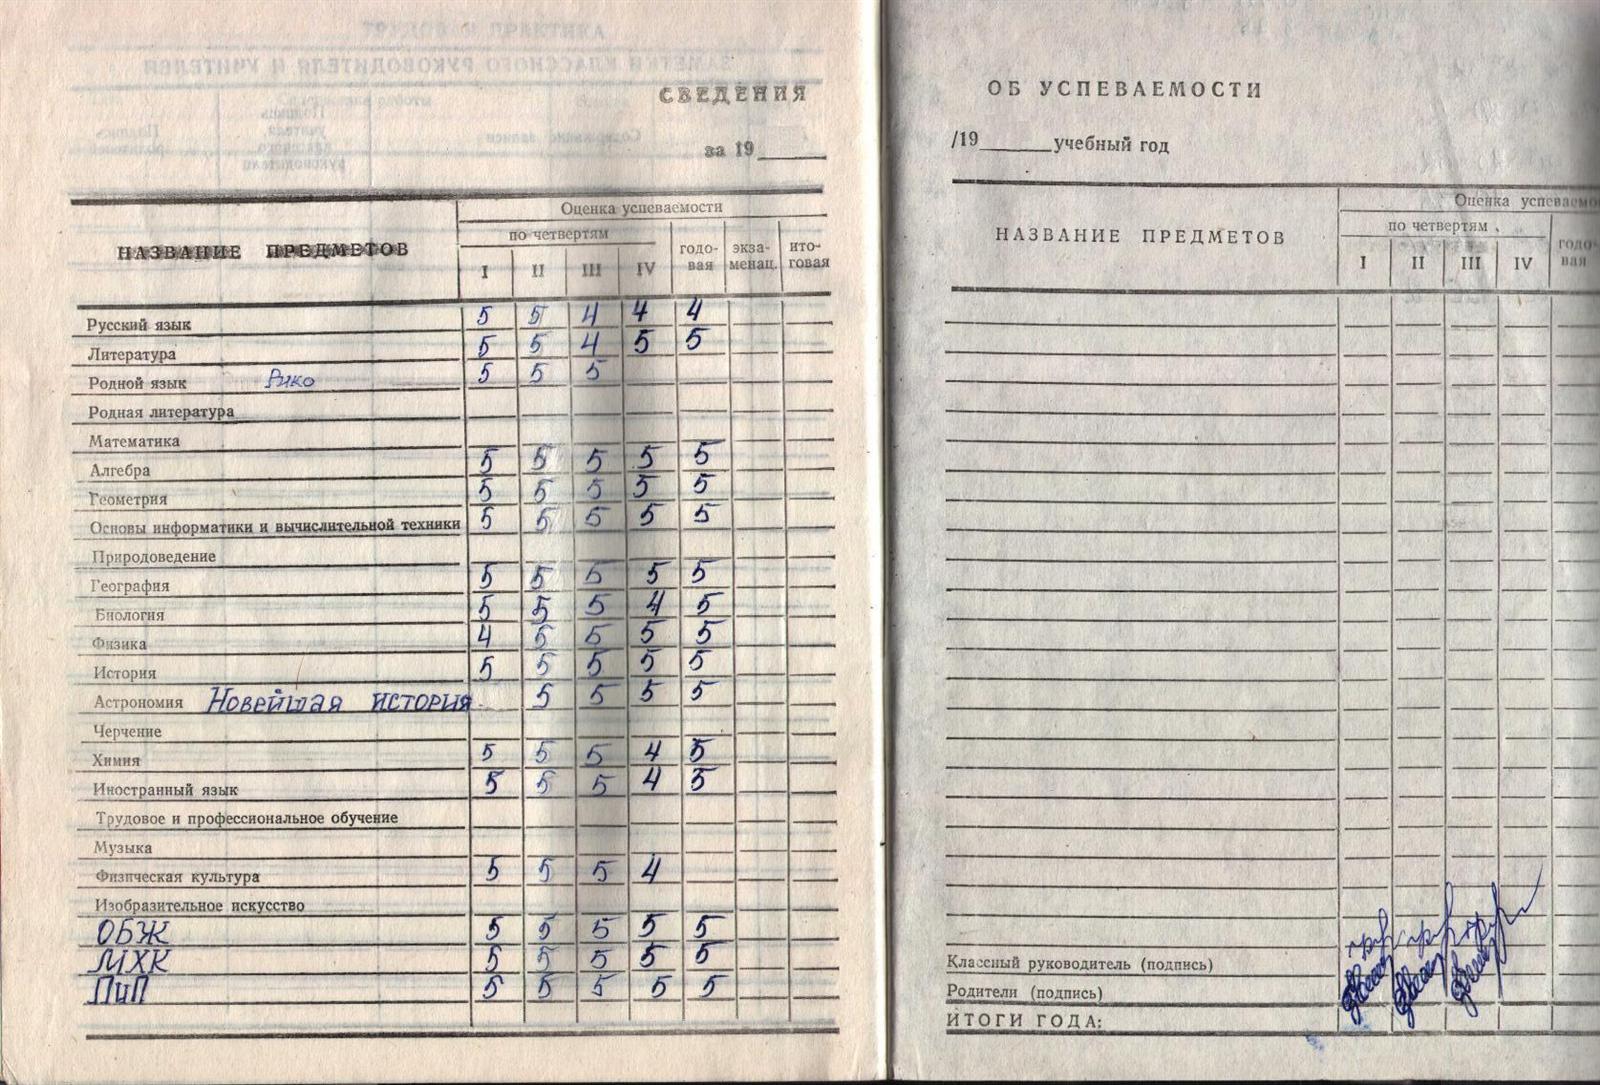 СВЕДЕНИЯ
за 19
НАЗВАНИЕ ПРЕДМЕТОВ
Оценка успеваемости
по четвертям
I II III IV
годо-вая
экза-менац.
ито-говая
Русский язык 5 5 4 4 4
Литература 5 5 4 5 5
Родной язык Рико 5 5 5
Родная литература
Математика
Алгебра 5 5 5 5 5
Геометрия 5 5 5 5 5
Основы информатики и вычислительной техники 5 5 5 5 5
Природоведение
География 5 5 5 5 5
Биология 5 5 5 4 5
Физика 4 5 5 5 5
История 5 5 5 5 5
Астрономия Новейшая история 5 5 5 5
Черчение
Химия 5 5 5 4 5
Иностранный язык 5 5 5 4 5
Трудовое и профессиональное обучение
Музыка
Физическая культура 5 5 5 4
Изобразительное искусство
ОБЖ 5 5 5 5 5
МХК 5 5 5 5 5
ПиП 5 5 5 5 5
ОБ УСПЕВАЕМОСТИ
/19 учебный год
НАЗВАНИЕ ПРЕДМЕТОВ
Оценка успеваемо
по четвертям
I II III IV
годо-вая
Классный руководитель (подпись)
Родители (подпись)
ИТОГИ ГОДА: